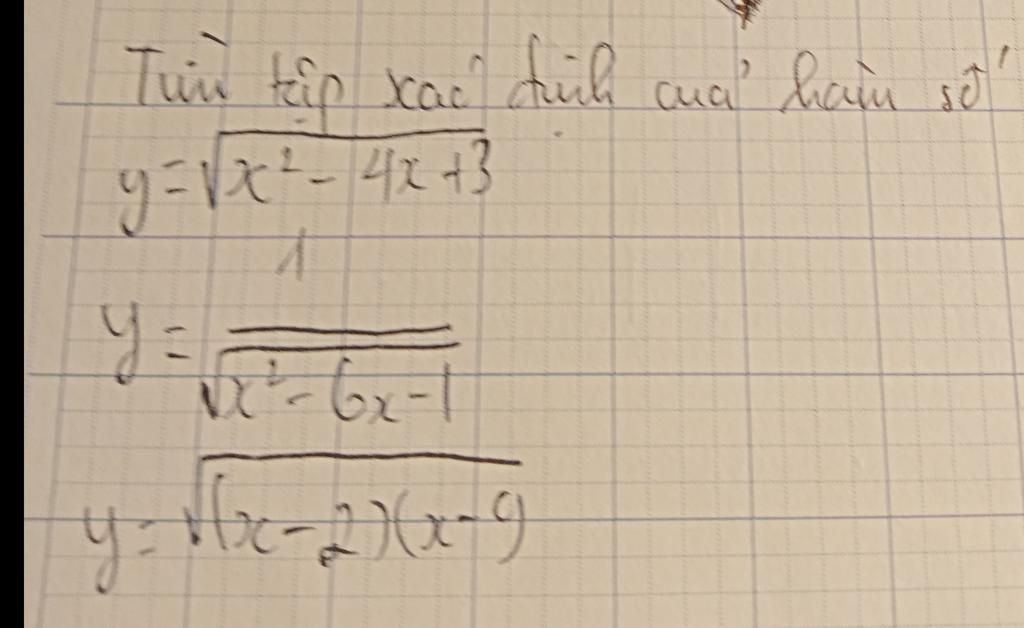 Tìm tập xác định của hàm số
y = √(x² - 4x + 3)
y = 1/√(x² - 6x - 1)
y = √((x - 2)(x - 9))